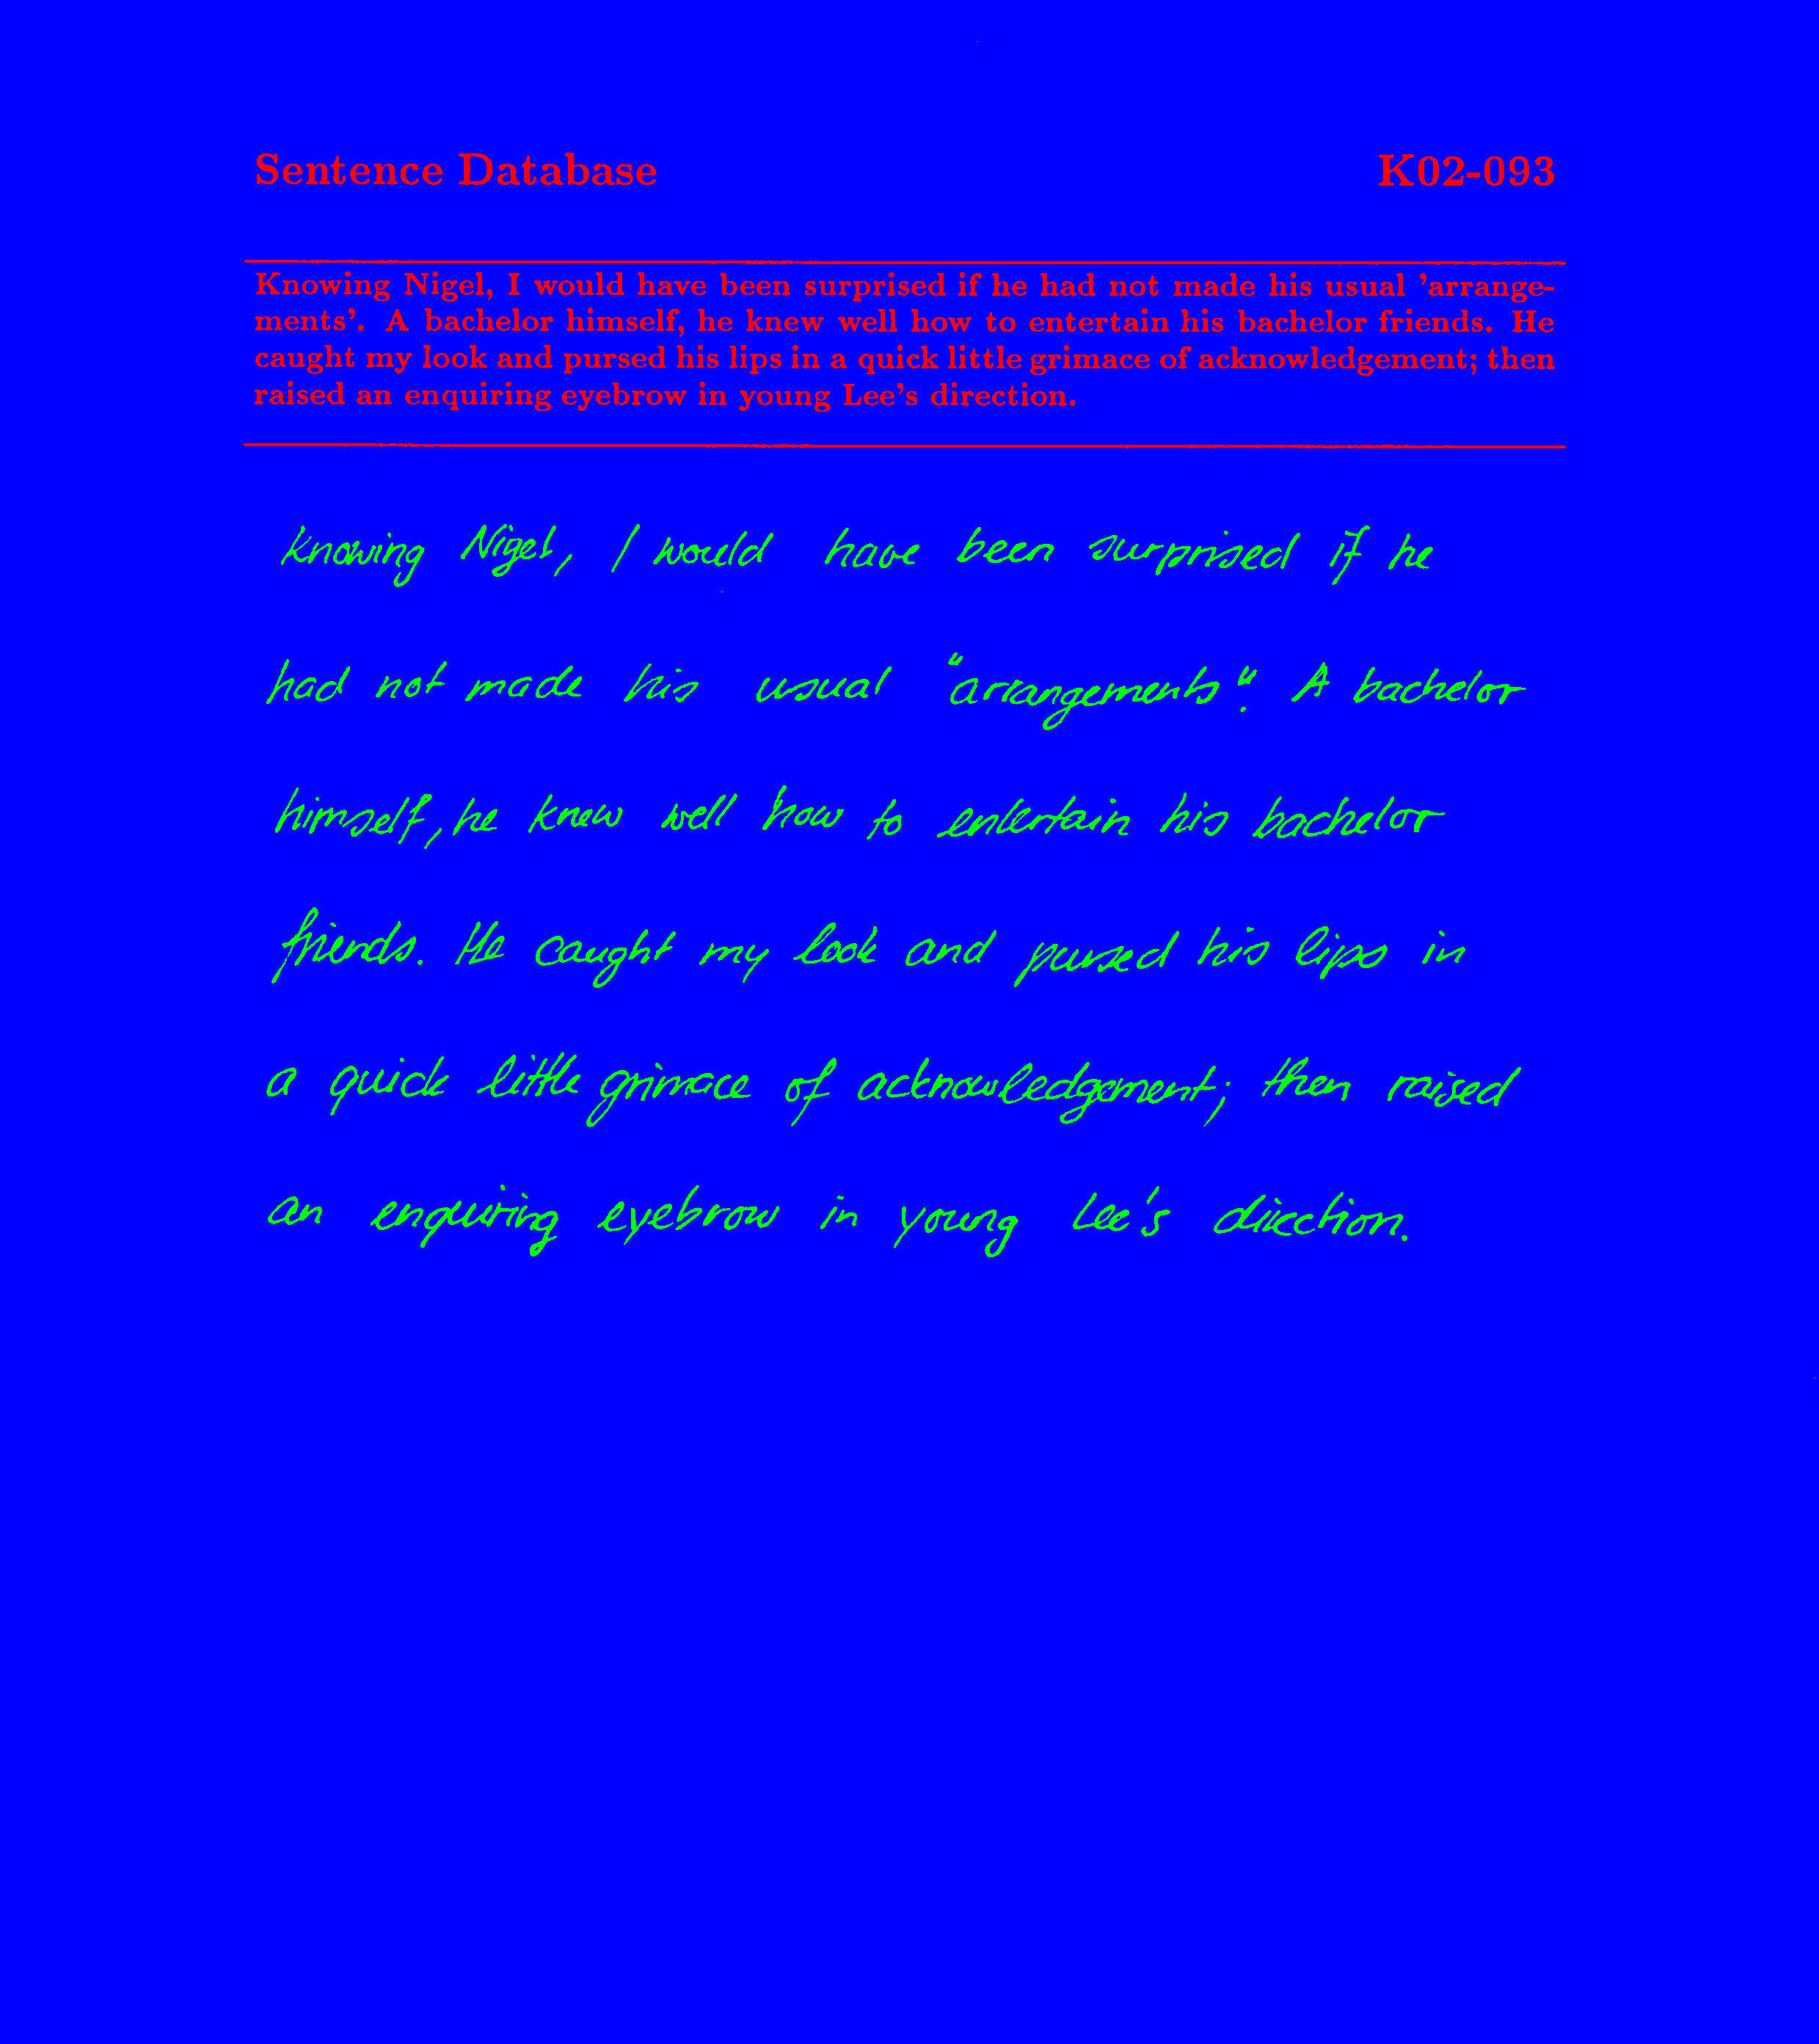 Sentence Database K02-093
Knowing Nigel, I would have been surprised if he had not made his usual 'arrange-
ments'. A bachelor himself, he knew well how to entertain his bachelor friends. He
caught my look and pursed his lips in a quick little grimace of acknowledgement; then
raised an enquiring eyebrow in young Lee's direction.
Knowing Nigel, I would have been surprised if he
had not made his usual "arrangements". A bachelor
himself, he knew well how to entertain his bachelor
friends. He caught my look and pursed his lips in
a quick little grimace of acknowledgement; then raised
an enquiring eyebrow in young Lee's direction.